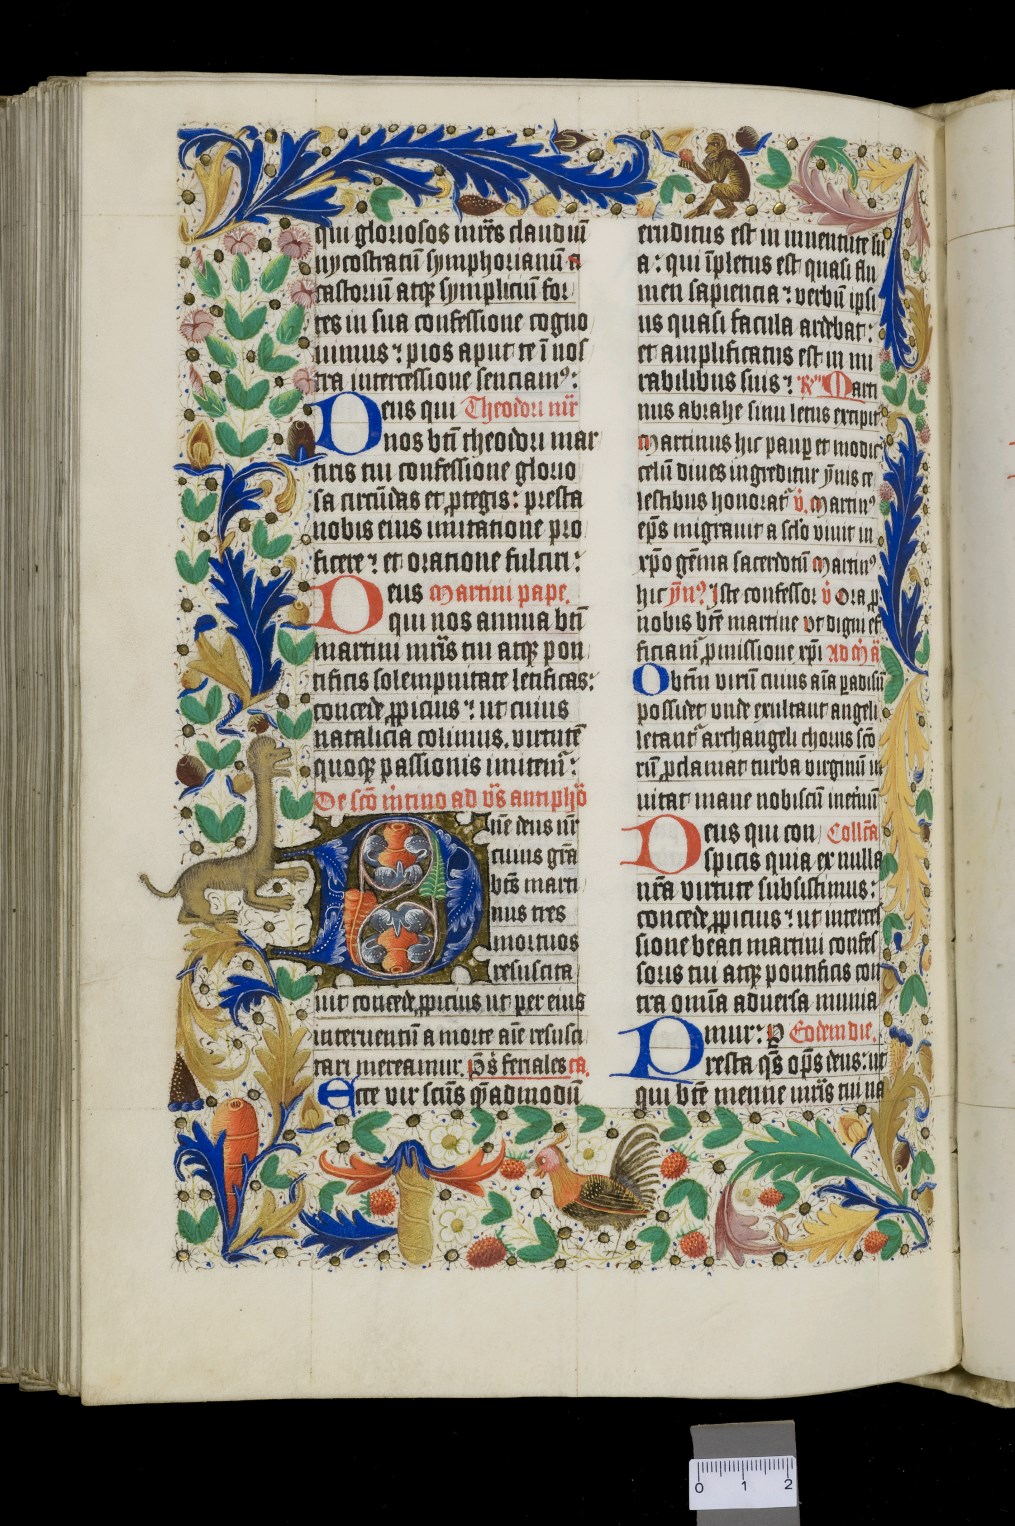 qui gloriosos mr̄es claudiū
nycostratū symphorianū ⁊
castoriū atq̄ sympliciū for
tes in sua confessione cogno
uimus ⁊ pios aput te ī nos
tra intercessione senciamꝰ:
Deus qui Theodori mr̄
nos btī theodori mar
tiris tui confessione glorio
sa circūdas et ꝓtegis: presta
nobis eius imitatione pro
ficere ⁊ et oratione fulciri:
Deus Martini pape.
qui nos annua btī
martini mr̄is tui atq̄ pon
tificis solempnitate letificas:
concede ꝓpicius ⁊ ut cuius
natalicia colimus. virtutē
quoq̄ passionis imitemr̄:
De scō m̄tino ad vs̄ antiphō
Dn̄e deus nr̄
cuius gr̄a
btūs marti
nus tres
mortuos
resuscita
uit concede ꝓpicius ut per eius
interuentū a morte aīe resusci
tari mereamur. p̄s feriales ca.
Ecce vir scūs q̄ admodū
eruditus est in iuuentute su
a: qui īpletus est quasi flu
men sapiencia ⁊ verbū ipsi
us quasi facula ardebat:
et amplificatus est in mi
rabilibus suis ⁊ R̄ Marti
nus abrahe sinu letus excipit̄
Martinus hic paup̄ et modic̄
celū diues ingreditur ȳnis ce
lestibus honorat̄ v̄. Martinꝰ
ep̄s migrauit a sc̄lo viuit in
xp̄o gēma sacerdotū Martinꝰ
hic ȳnꝰ Iste confessor v̄ Ora ꝓ
nobis btē martine vt digni ef
ficiam̄ ꝓmissione xp̄i Ad m̄ ā
O btm̄ virū cuius aīa paradisū
possidet vnde exultant angeli
letant̄ archangeli chorus scō
rū ꝓclamat turba virginū in
uitat mane nobiscū in et̄nū
Deus qui con Collc̄a
spicis quia ex nulla
nr̄a virtute subsistimus:
concede ꝓpicius ⁊ ut interces
sione beati martini confes
soris tui atq̄ pontificis con
tra omīa aduersa munia
mur: p̄ Eodem die.
Presta q̄s op̄s deus: ut
qui btē menne mr̄is tui na
0 1 2